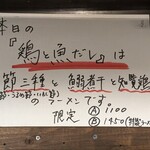 本日の
『鶏と魚だし』は
節三種と鰯煮干と知覧鶏
のラーメンです
限定 Ⓐ1100
Ⓑ1450